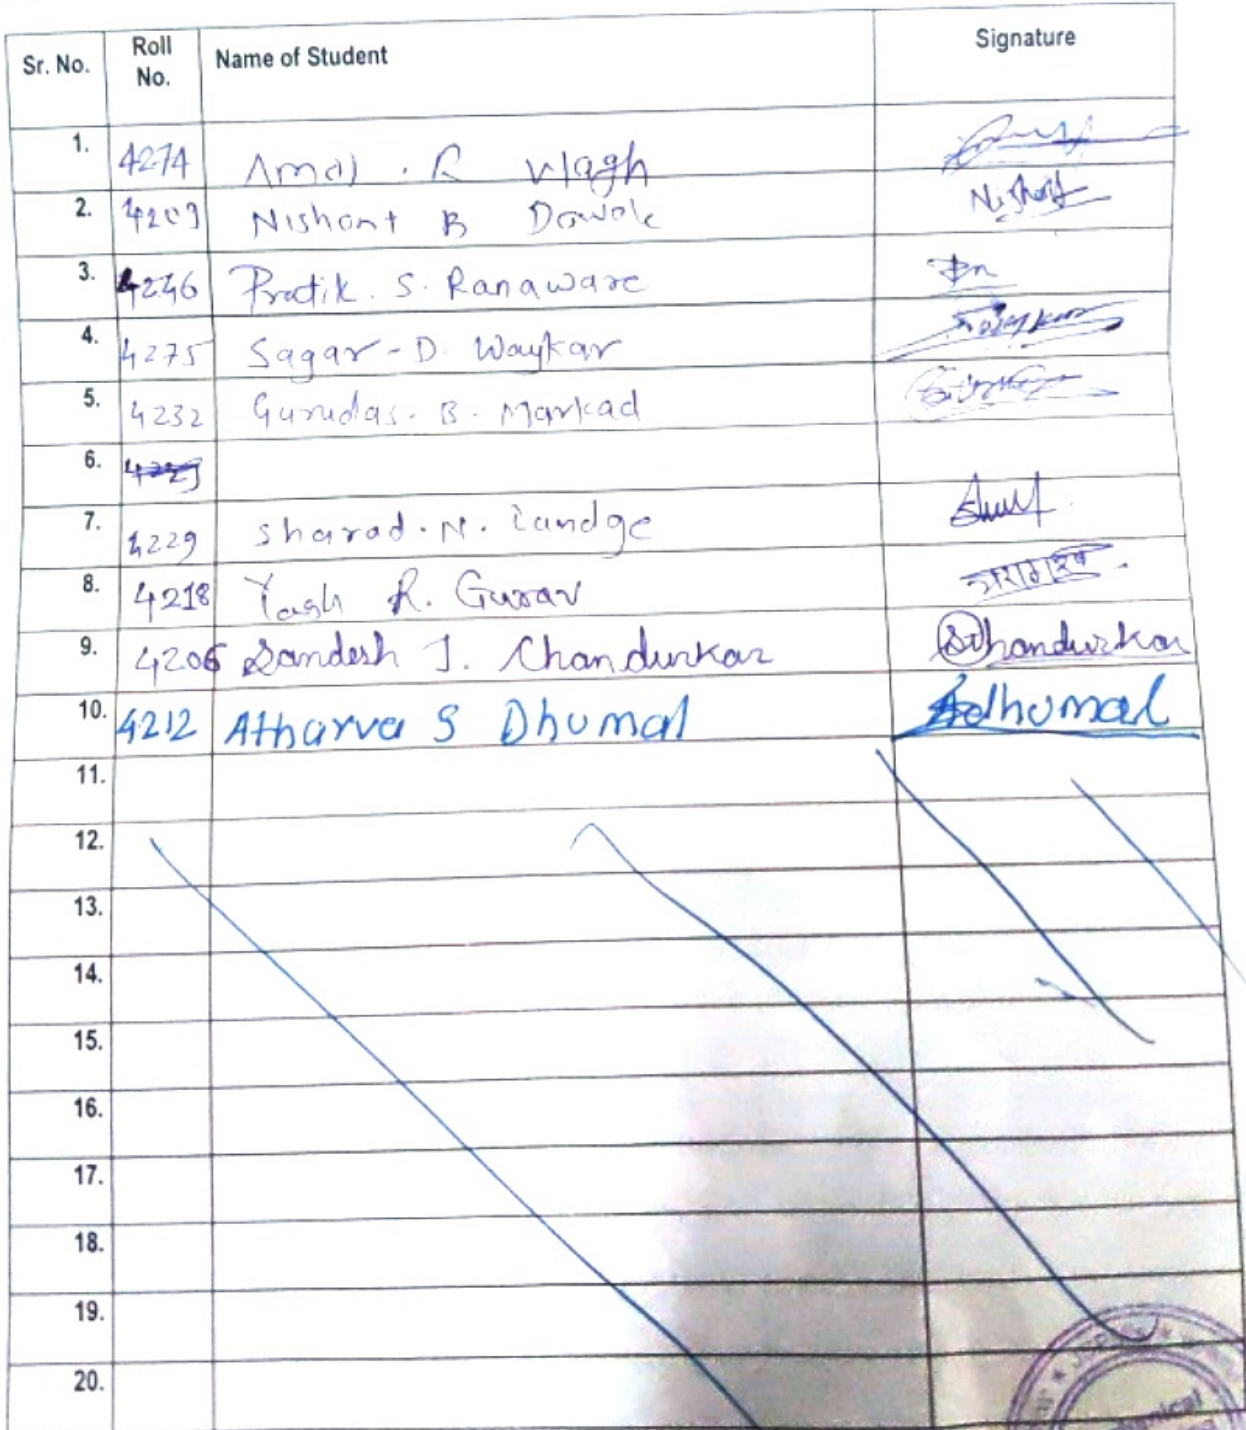 Sr. No. Roll No. Name of Student Signature
1. 4274 Amol . R Wagh
2. 4209 Nishant B Dawale Nishant
3. 4246 Pratik. S. Ranaware
4. 4275 Sagar-D. Waykar
5. 4232 Gurudas. B. Markad
6.
7. 4229 Sharad. N. Landge
8. 4218 Yash R. Gurav
9. 4206 Sandesh J. Chandurkar SChandurkar
10. 4212 Atharva S Dhumal Adhumal
11.
12.
13.
14.
15.
16.
17.
18.
19.
20.